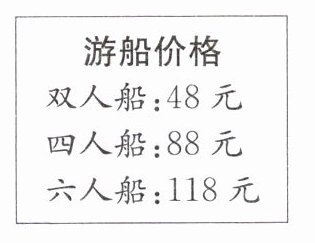 游船价格
双人船:48 元
四人船:88 元
六人船:118 元